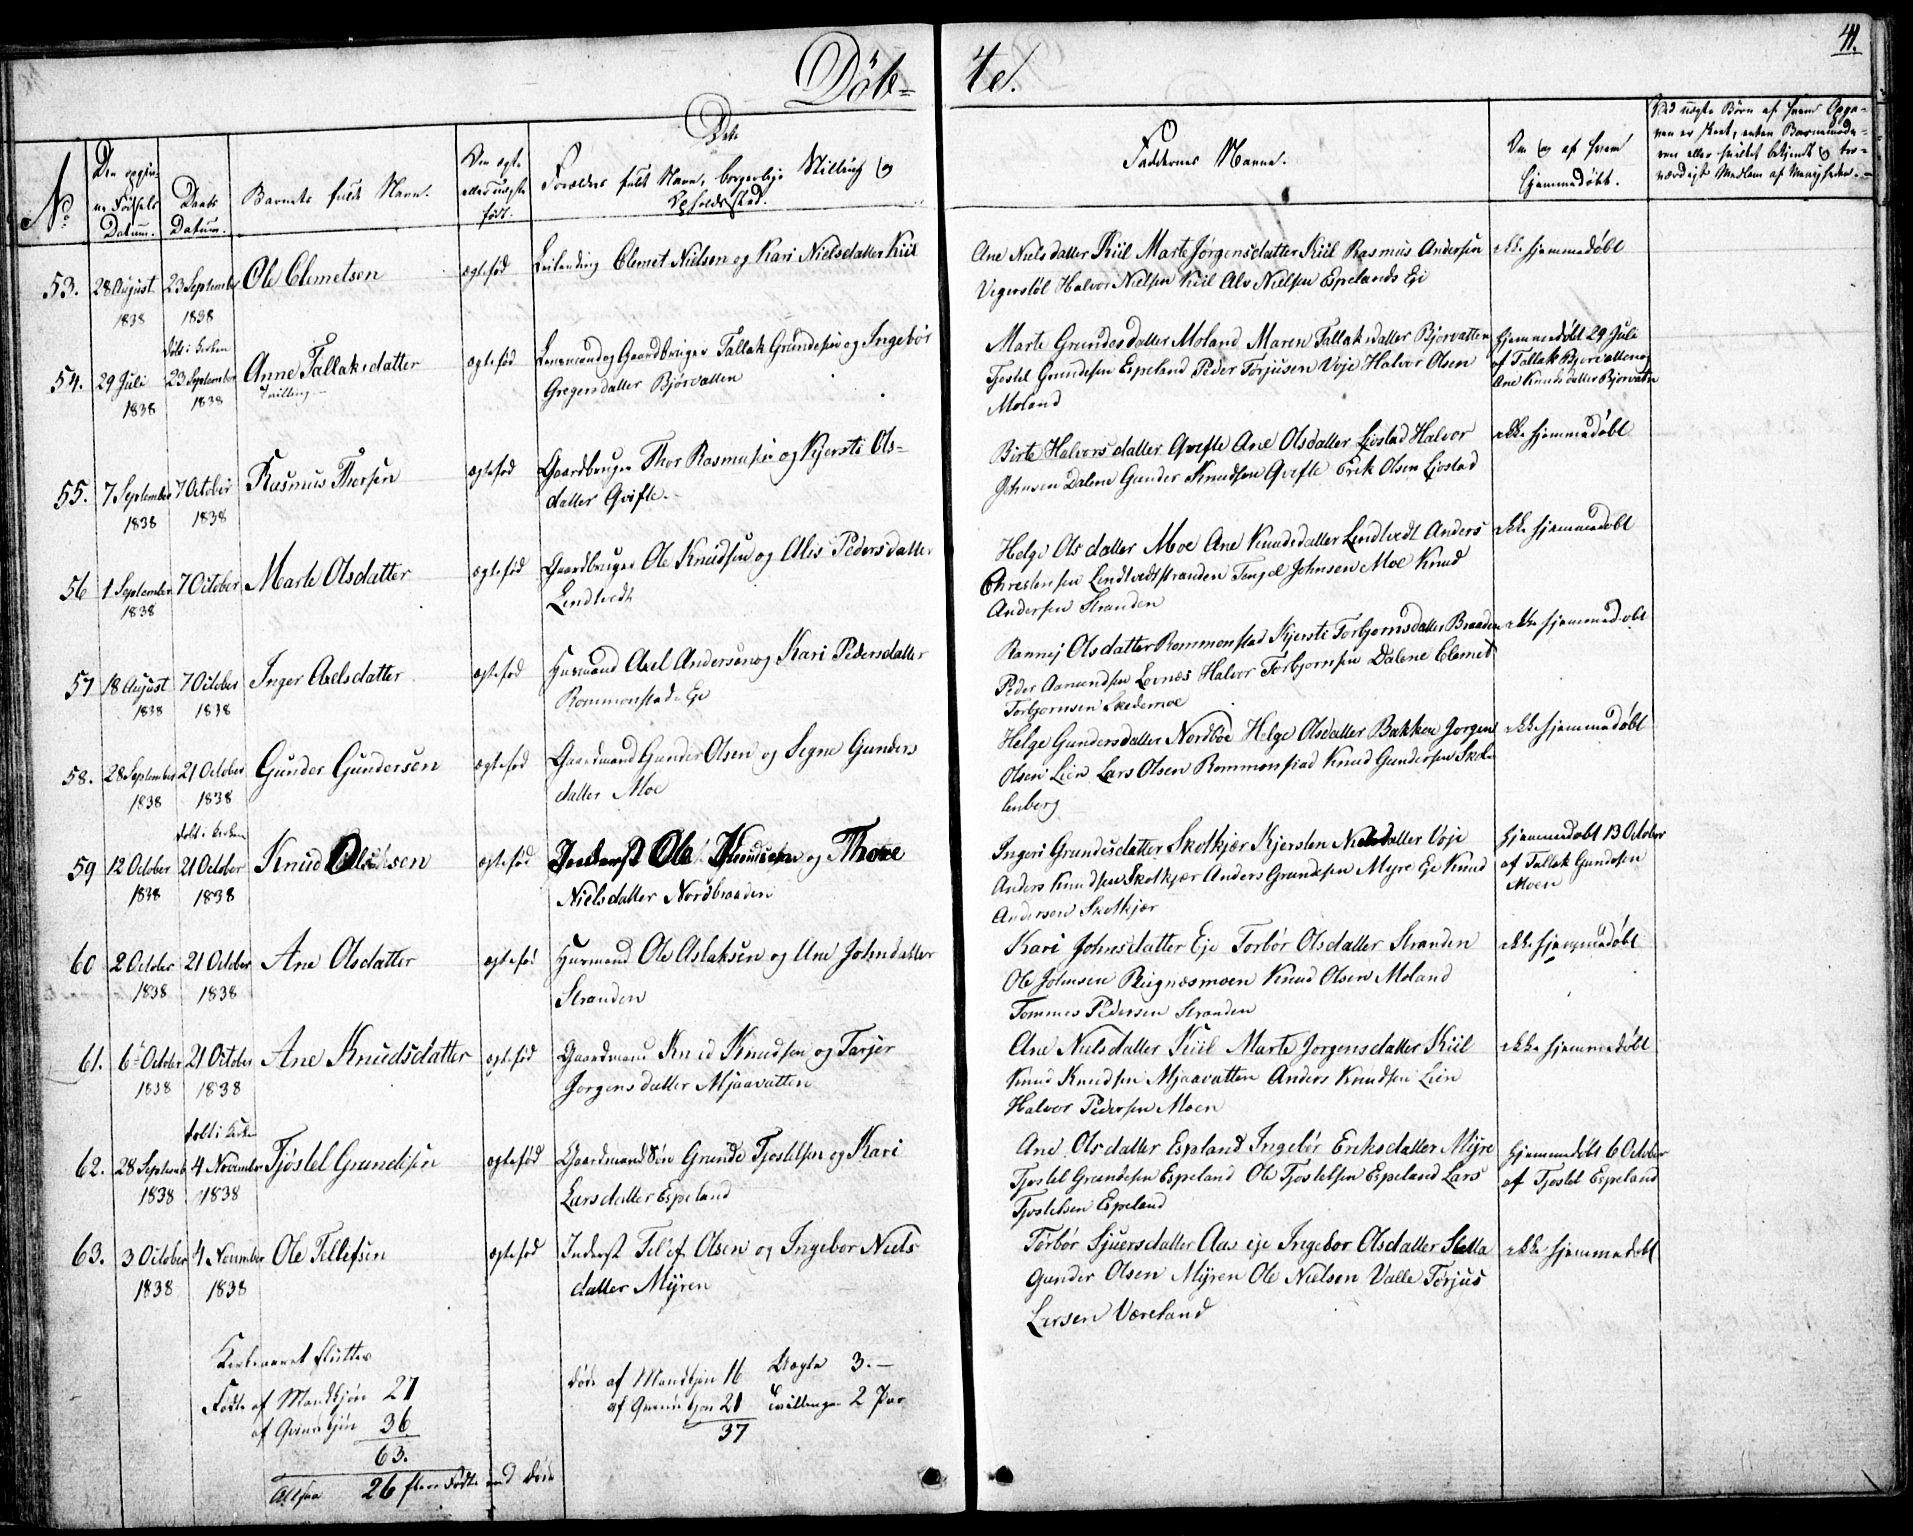 Döb=
te.
41.
No
Den opgiv-
ne Fødsels
Datum.
Daabs
Datum.
Barnets fulde Navn.
Om ægte
eller uægte
født.
Dets
Forældres fulde Navn, borgerlige Stilling og
Opholdssted.
Faddernes Navne.
Om og af hvem
hjemmedøbt.
Ved uægte Børn af hvem Opga-
ven er skeet, enten Barnemode-
ren eller hvilket bekjendt og tro-
værdigt Medlem af Menigheden.
53. 28 August 23 September Ole Clemetsen ægtefød Leilending Clemet Nielsen og Kari Nielsdatter Kiil
1838 1838
Ane Nielsdatter Kiil Marte Jørgensdatter Kiil Rasmus Andersen ikke hjemmedøbt
Vegerstøl Halvor Nielsen Kiil Alv Nielsen Espelands Eji
døbt i Kirken
54. 29 Juli 23 September Anne Tallaksdatter ægtefød Lensmand og Gaardbruger Tallak Grundesen og Ingebør
1838 1838 Tvilling Gregersdatter Bjorvatten
Marte Grundesdatter Moland Maren Tallaksdatter Bjorvatten hjemmedøbt 29 Juli
Tjøstel Grundesen Espeland Peder Torjusen Voje Halvor Olsen af Tallak Bjorvatten og
Moland Ane Knudsdatter Bjorvatn
55. 7 September 7 October Rasmus Thorsen ægtefød Gaardbruger Thor Rasmusen og Kjersti Ols-
1838 1838 datter Qvifte.
Birte Halvorsdatter Qvifte Ane Olsdatter Livstad Halvor ikke hjemmedøbt
Johnsen Dalene Gunder Knudsen Qvifte Erik Olsen Livstad
56 1 September 7 October Marte Olsdatter ægtefød Gaardbruger Ole Knudsen og Alis Pedersdatter
1838 Lindtvedt
Helge Olsdatter Moe Ane Knudsdatter Lindtvedt Anders ikke hjemmedøbt
Christensen Lindtvedtstranden Tengel Johnsen Moe Knud
Andersen Stranden
57 18 August 7 October Inger Axelsdatter ægtefød Husmand Axel Andersen og Kari Pedersdatter
1838 1838 Rommonstad Eje
Rannej Olsdatter Rommonstad Kjersti Torbjornsdatter Braaden ikke hjemmedøbt
Peder Aamundsen Lovnes Halvor Torbjornsen Dalene Clemet
Torbjornsen Skedemoe
58. 28 September 21 October Gunder Gundersen ægtefød Gaardmand Gunder Olsen og Segne Gunders
1838 1838 datter Moe
Helge Gundersdatter Nordbøe Helge Olsdatter Bakken Jorgen ikke hjemmedøbt
Olsen Lien Lars Olsen Rommonstad Knud Gundersen Skol
lenberg
døbt i Kirken
59 12 October 21 October Knud Olsen ægtefød Inderst Ole Knudsen og Thore
1838 1838 Nielsdatter Nordbraaden
Ingeri Grundesdatter Skotkjær Kjersten Nielsdatter Voje hjemmedøbt 13 October
Anders Knudsen Skotkjær Anders Grundesen Myre Eje Knud af Tallak Gundesen
Andersen Skotkjær Moen
60 2 October 21 October Ane Olsdatter ægtefød Husmand Ole Aslaksen og Ane Johnsdatter
1838 1838 Stranden
Kari Johnsdatter Eje Torbør Olsdatter Stranden ikke hjemmedøbt
Ole Johnsen Reignæsmoen Knud Olsen Moland
Tommes Pedersen Stranden
61. 6 October 21 October Ane Knudsdatter ægtefød Gaardmand Knud Knudsen og Tarjer
1838 1838 Jorgensdatter Mjaavatten
Ane Nielsdatter Kiil Marte Jorgensdatter Kiil ikke hjemmedøbt
Knud Knudsen Mjaavatten Anders Knudsen Lien
Halvor Pedersen Moen
døbt i Kirken
62. 28 Septemb 4 November Tjøstel Grundesen ægtefød Gaardmandsøn Grunde Tjostelsen og Kari
1838 1838 Larsdatter Espeland
Ane Olsdatter Espland Ingebør Eriksdatter Myre hjemmedøbt 6 October
Tjostel Grundesen Espeland Ole Tjostelsen Espeland Lars af Tjostel Espeland
Tjostelsen Espeland
63. 3 October 4 November Ole Tellefsen ægtefød Inderst Telef Olsen og Ingebor Niels
1838 1838 datter Myren
Torbør Sjuersdatter Aas eje Ingebor Olsdatter Sletta ikke hjemmedøbt
Gunder Olsen Myren Ole Nielsen Valle Torjus
Larsen Væreland
Kirkeaaret slutter
Fødte af Mandkjøn 27
af Qvindekjøn 36
63.
Altsaa 26 flere Fødte end Døde
Døde af Mandkjøn 16 Uægte 3.—
af Qvindekjøn 21 Tvillinger 2 Par
37